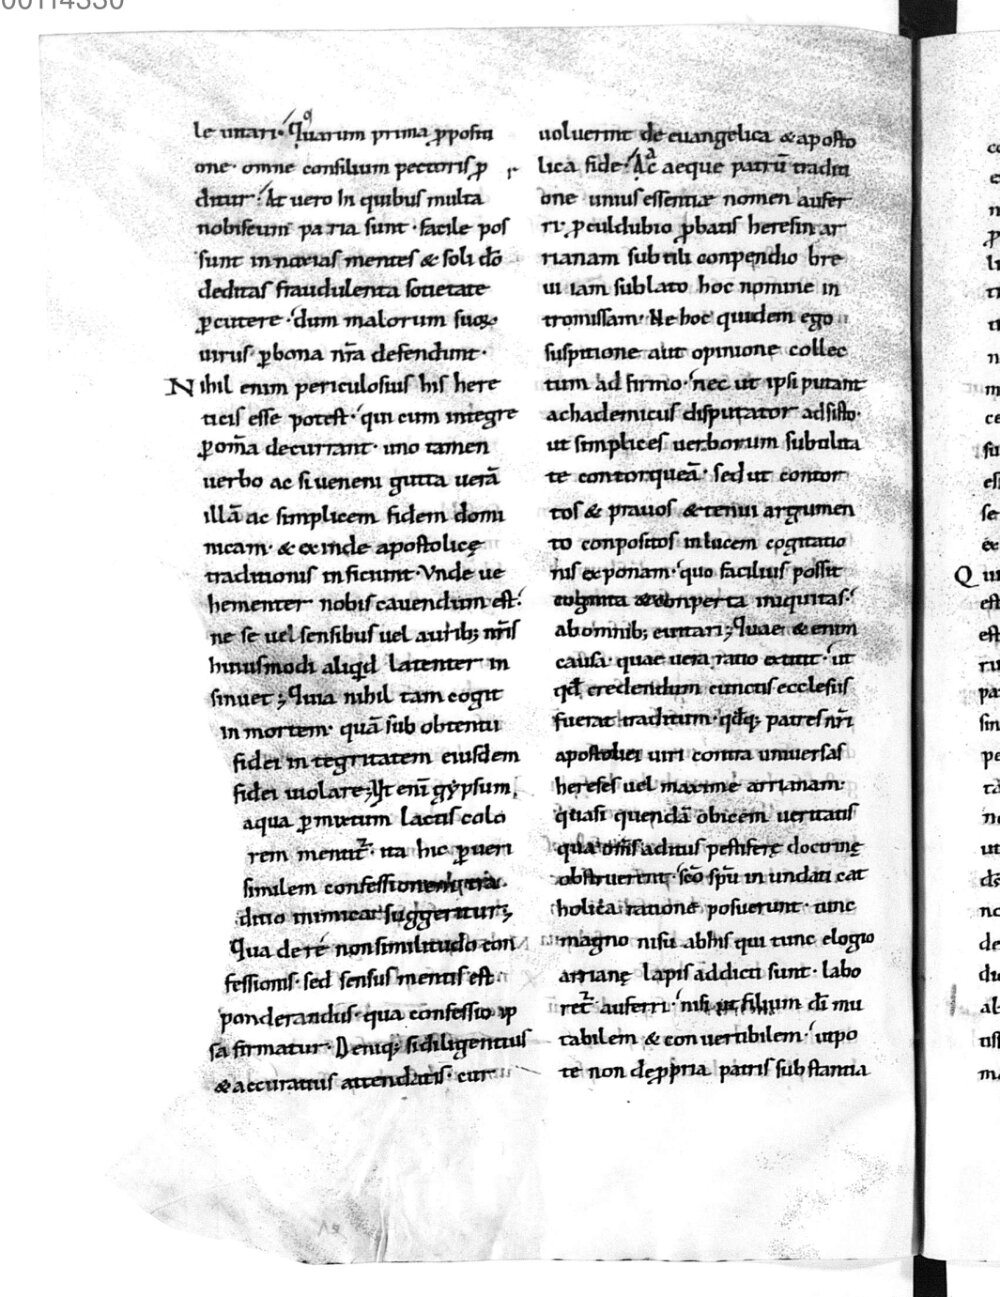 00114330
le unari. Quarum prima ꝓposita
one. omne consilium pectoris ꝓ
ditur. At uero In quibus multa
nobiscum paria sunt. facile pos
sunt innoxias mentes & soli dō
deditas fraudulenta societate
ꝑcutere. dum malorum suoꝝ
uirus ꝑ bona nr̄a defendunt.
Nihil enim periculosius his here
ticis esse potest. qui cum integre
ꝑ om̄a decurrant. uno tamen
uerbo ac si ueneni gutta uerā
illā ac simplicem fidem domi
nicam. & exinde apostolicę
traditionis inficiunt. Unde ue
hementer nobis cauendum est.
ne se uel sensibus uel aurib; nr̄is
huiusmodi aliqd latenter in
sinuet; Quia nihil tam cogit
in mortem. quā sub obtentu
fidei integritatem eiusdem
fidei uiolare; Ut enī gypsum,
aqua ꝑmixtum lactis colo
rem mentit. ita hic ꝑ ueri
similem confessionem tra
ditio inimica suggeritur;
Qua de re non similitudo con
fessionis. sed sensus mentis est
ponderandus. qua confessio ip
sa firmatur. Deniq; si diligentius
& accuratius attendatis. cur
uoluerint de euangelica & aposto
lica fide. Ac aeque patrū traditi
one unius essentiæ nomen aufer
ri, ꝓculdubio ꝓbatis heresin ar
rianam subtili conpendio bre
ui iam sublato hoc nomine in
tromissam. Ne hoc quidem ego
suspitione aut opinione collec
tum adfirmo. nec ut ipsi putant
achademicus disputator adsisto.
ut simplices uerborum subtilita
te contorqueā. sed ut contor
tos & prauos & tenui argumen
to conpositos inlucem cogitatio
nis exponam. quo facilius possit
cognita & conperta iniquitas.
ab omnib; euitari; Quae & enim
causa. quae uera ratio extitit. ut
qđ credendum cunctis ecclesiis
fuerat traditum. qđq; patres nr̄i
apostolici uiri contra uniuersas
hereses uel maxime arrianam.
quasi quendā obicem ueritatis
qua om̄is aditus pestiferę doctrinę
obstruerent. sc̄o sp̄u inundati cat
holica ratione posuerunt. tunc
magno nisu abhis qui tunc elogio
arrianę lapis addicti sunt. labo
ret auferri. nisi ut filium dī mu
tabilem & conuertibilem. utpo
te non de ꝓpria patris substantia